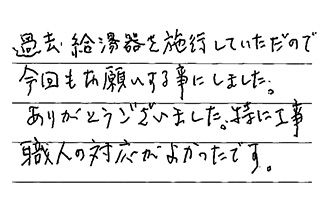 過去給湯器を施行していただので
今回もお願いする事にしました。
ありがとうございました。特に工事
職人の対応がよかったです。